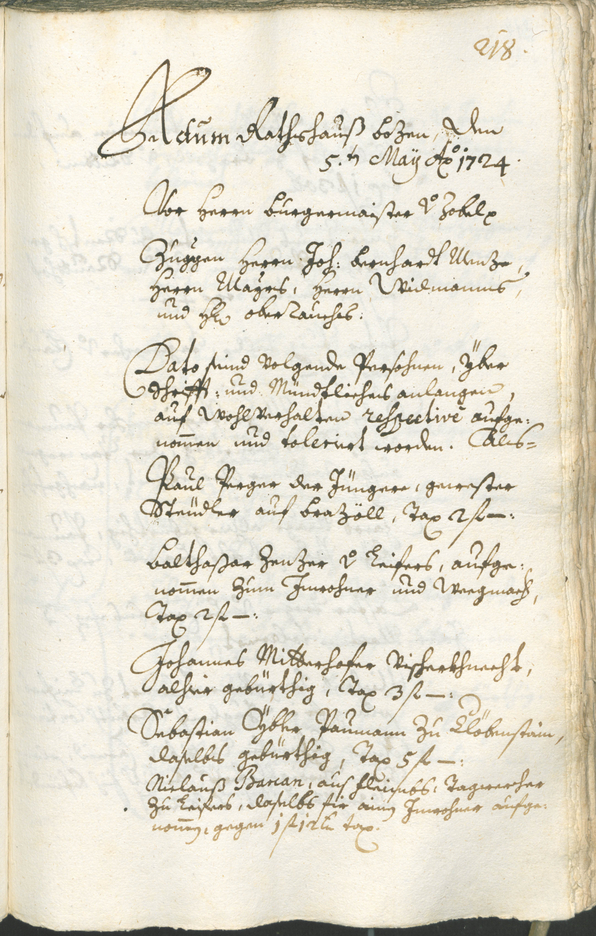 218.
Actum Rathshauß bozen, den
5.t May Ao 1724.
Vor Herrn burgermaister v Zobel
Zuggen Herrn Joh: bernhardt
Herrn Mayrs, Herrn Widmanns,
und H oberrauchs:
Dato seind volgende Persohnen, yber
Schrifft: und Mündtliches anlangen,
auf Wohlverhalten respective aufge:
nommen und tolerirt worden. Als=
Paul Perger der Jüngere, gewester
Steudler auf brazöll, Tax 2 f —:
balthaßar Zenzer v Leifers, aufge:
nommen zum Inwohner und Weegmach,
Tax 2 f —:
Johannes Mitterhofer Vischerkhnecht,
alhier gebürthig, Tax 3 f —:
Sebastian Paumann zu Clobenstain,
daselbs gebürthig, Tax 5 f —:
Niclauß Barcan, aus fleimbs, Tagwercher
zu Leifers, daselbs für ainen Inwohner aufge:
nommen, gegen 1 f 12 tax.